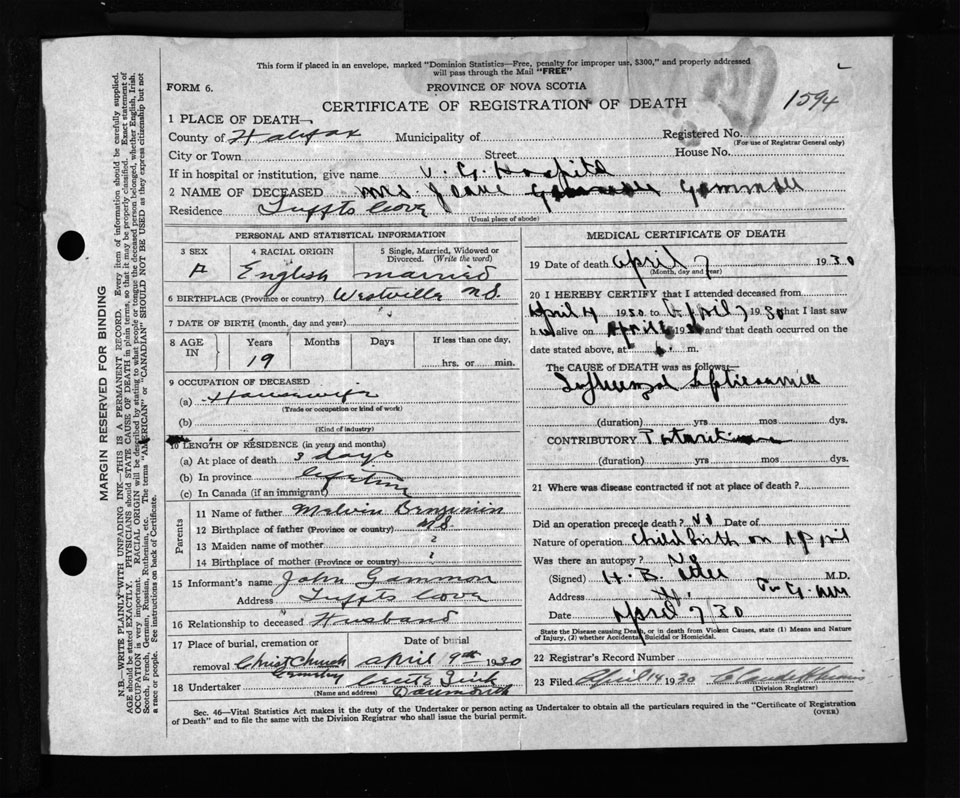 This form if placed in an envelope, marked "Dominion Statistics—Free, penalty for improper use, $300," and properly addressed
will pass through the Mail "FREE"
FORM 6.
PROVINCE OF NOVA SCOTIA
CERTIFICATE OF REGISTRATION OF DEATH
1594
1 PLACE OF DEATH—
County of Halifax Municipality of Registered No.
(For use of Registrar General only)
City or Town Street House No.
If in hospital or institution, give name V. G. Hospital
2 NAME OF DECEASED Mrs Jeane Gammon
Residence Tuffts Cove
(Usual place of abode)
PERSONAL AND STATISTICAL INFORMATION
3 SEX 4 RACIAL ORIGIN 5 Single, Married, Widowed or Divorced. (Write the word)
F English married
6 BIRTHPLACE (Province or country) Westville N.S.
7 DATE OF BIRTH (month, day and year)
8 AGE IN Years Months Days If less than one day,
19 hrs. or min.
9 OCCUPATION OF DECEASED
(a) Housewife
(Trade or occupation or kind of work)
(b)
(Kind of industry)
10 LENGTH OF RESIDENCE (in years and months)
(a) At place of death 3 days
(b) In province Lifetime
(c) In Canada (if an immigrant)
Parents
11 Name of father Melvin Benjamin
12 Birthplace of father (Province or country) N.S.
13 Maiden name of mother ?
14 Birthplace of mother (Province or country) ?
15 Informant's name John Gammon
Address Tuffts Cove
16 Relationship to deceased Husband
17 Place of burial, cremation or Date of burial
removal Christ Church Cemetery April 9th 1930
18 Undertaker Zink
(Name and address) Dartmouth
MEDICAL CERTIFICATE OF DEATH
19 Date of death April 7 1930
(Month, day and year)
20 I HEREBY CERTIFY that I attended deceased from
April 4 1930 to April 7 1930 that I last saw
h alive on April 1930 and that death occurred on
date stated above, at m.
The CAUSE of DEATH was as follows:
(duration) yrs mos dys.
CONTRIBUTORY
(duration) yrs mos dys.
21 Where was disease contracted if not at place of death?
Did an operation precede death? No Date of
Nature of operation Childbirth on April
Was there an autopsy? No
(Signed) H. B. M.D.
Address
Date April 7/30
State the Disease causing Death, or in death from Violent Causes, state (1) Means and Nature
of Injury, (2) whether Accidental, Suicidal or Homicidal.
22 Registrar's Record Number
23 Filed April 14 1930
(Division Registrar)
Sec. 46—Vital Statistics Act makes it the duty of the Undertaker or person acting as Undertaker to obtain all the particulars required in the "Certificate of Registration
of Death" and to file the same with the Division Registrar who shall issue the burial permit.
(OVER)
MARGIN RESERVED FOR BINDING
N.B.—WRITE PLAINLY WITH UNFADING INK—THIS IS A PERMANENT RECORD. Every item of information should be carefully supplied.
AGE should be stated EXACTLY. PHYSICIANS should STATE CAUSE OF DEATH in plain terms, so that it may be properly classified. Exact statement of
OCCUPATION is very important. RACIAL ORIGIN will be described by stating to what people or tongue the deceased person belonged, whether English, Irish,
Scotch, French, German, Russian, Ruthenian, etc. The terms "AMERICAN" or "CANADIAN" SHOULD NOT BE USED as they express citizenship but not
a race or people. See instructions on back of Certificate.